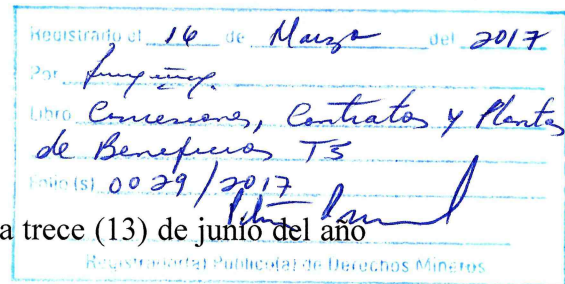 Registrado el 16 de Marzo del 2017
Por
Libro Concesiones, Contratos y Plantas
de Beneficios T5
Folio (s) 0029/2017
a trece (13) de junio del año
Registrador(a) Publico(a) de Derechos Mineros